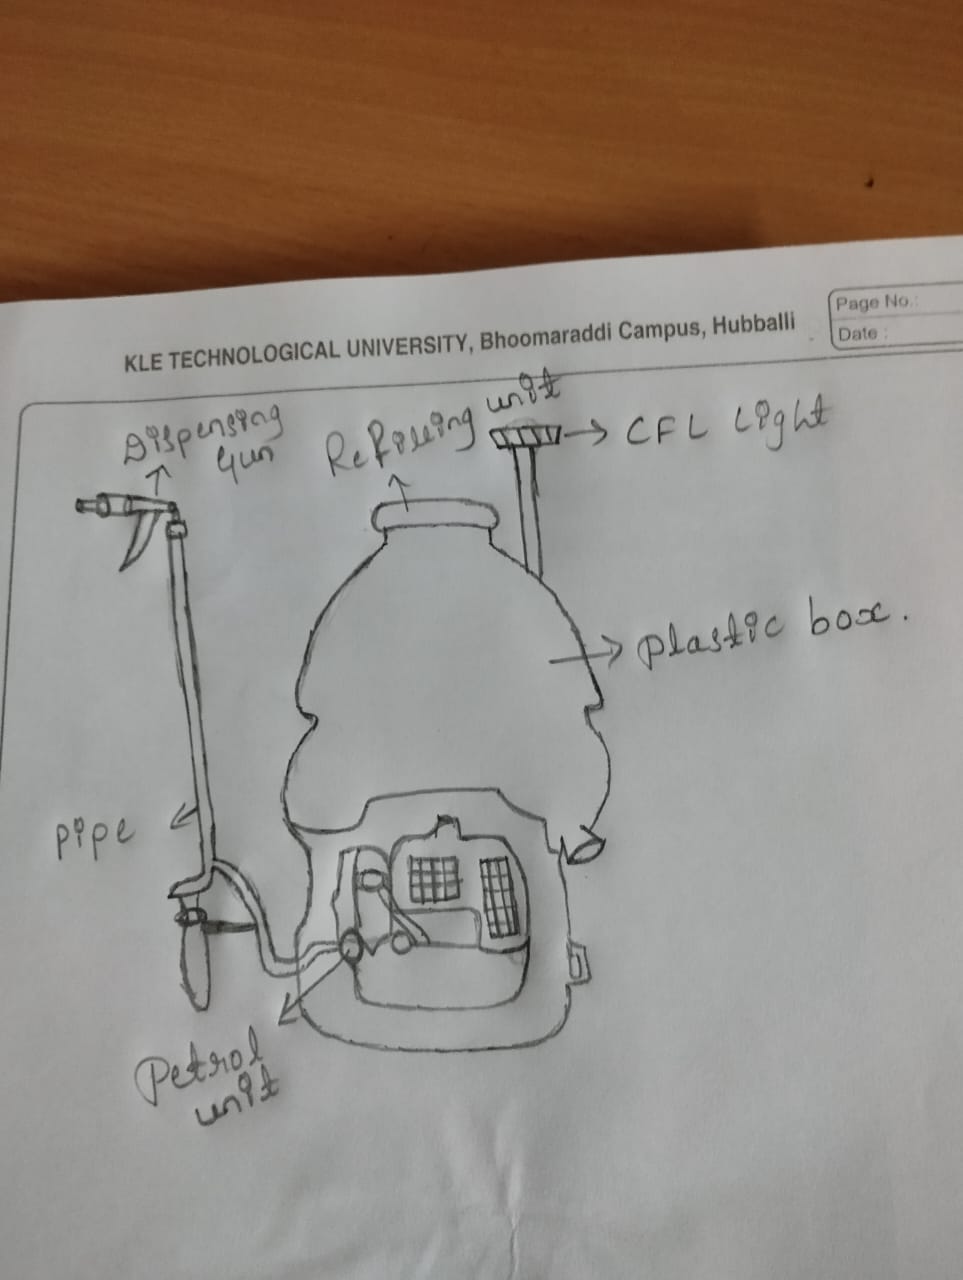 KLE TECHNOLOGICAL UNIVERSITY, Bhoomaraddi Campus, Hubballi
Page No.:
Date :
Dispensing
Gun
Refilling unit
CFL Light
plastic box.
pipe
Petrol
unit